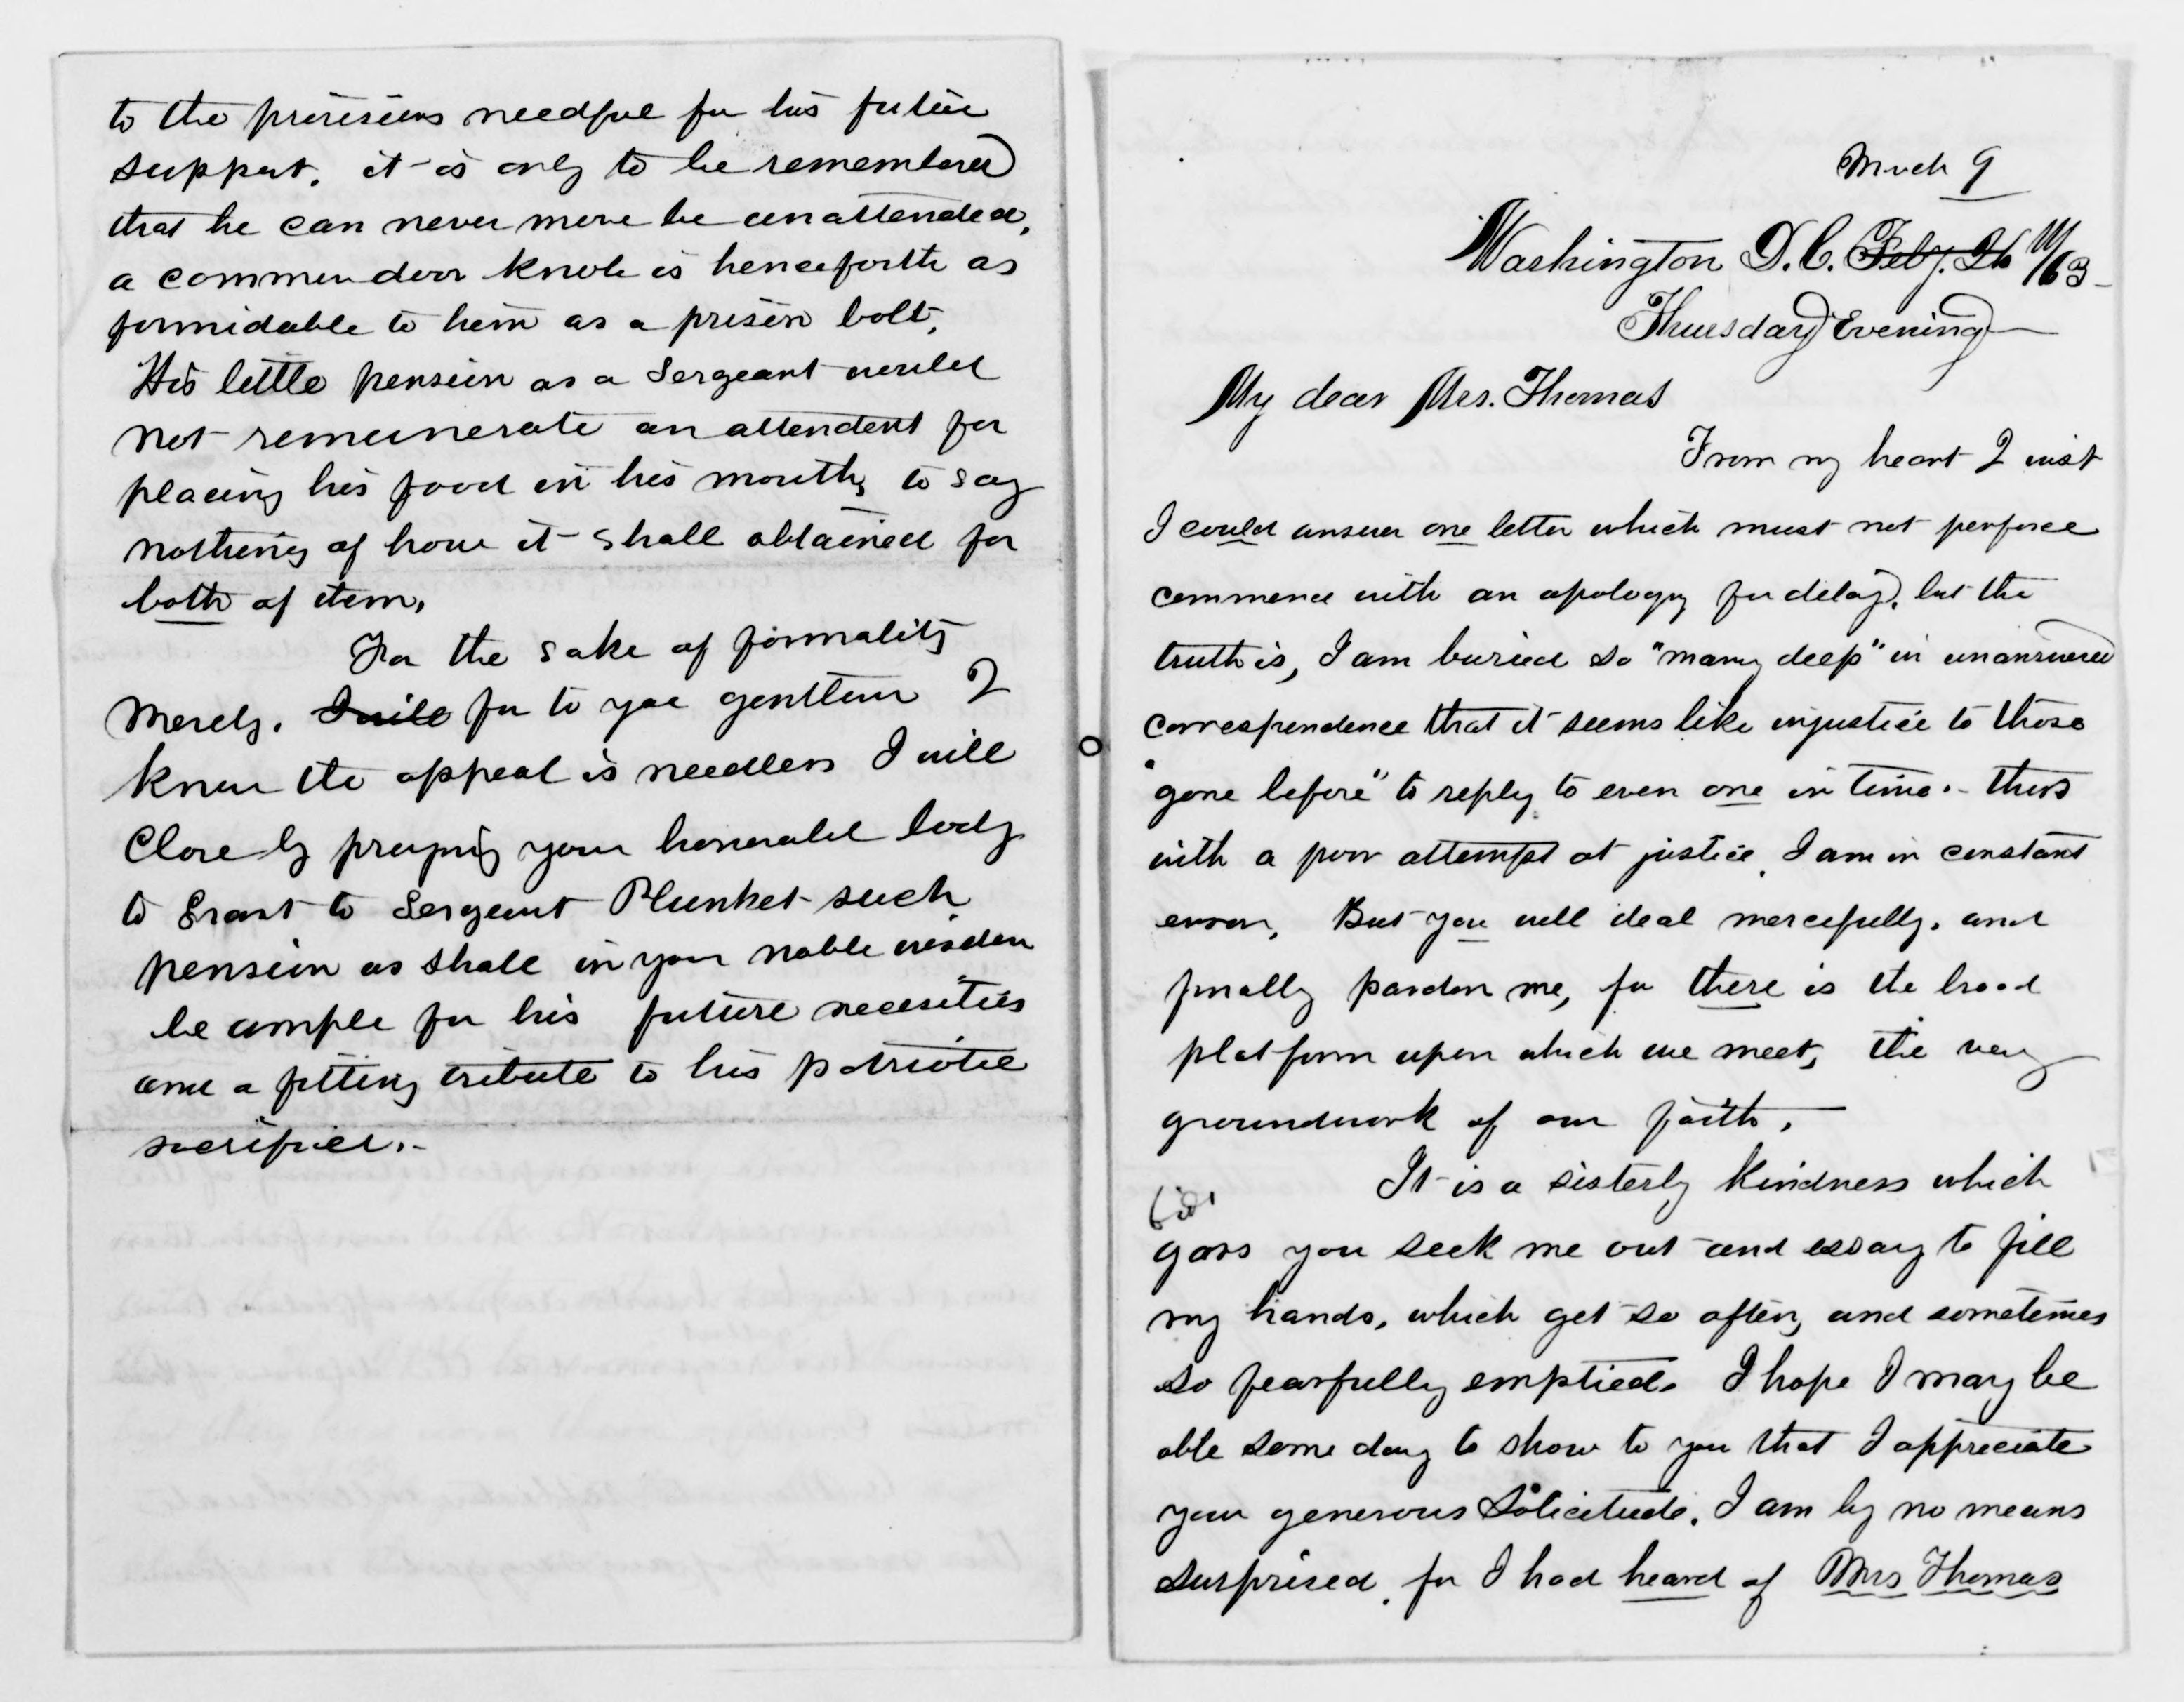 to the provisions needful for his future
support. it is only to be remembered
that he can never more be unattended,
a common door knob is henceforth as
formidable to him as a prison bolt,
His little pension as a Sergeant would
not remunerate an attendent for
placing his food in his mouth, to say
nothing of how it shall obtained for
both of item,
For the sake of formality
merely. I will for to you gentlem I
know the appeal is needless I will
Close by praying your honorabel body
to Grant to Sergeant Plunket such
pension as shall in your noble wisdom
be ample for his future necesities
and a fitting tribute to his patriotic
sacrifices.-
March 9
Washington D.C. Feby. 26 /63-
Thursday Evening
My dear Mrs. Thomas
From my heart I wish
I could answer one letter which must not perforce
commence with an apology for delay, but the
truth is, I am buried so "many deep" in unanswered
correspondence that it seems like injustice to those
"gone before" to reply to even one in time.- thus
with a poor attempt at justice, I am in constant
error, But you will deal mercifully, and
finally pardon me, for there is the broad
platform upon which we meet, the very
groundwork of our faith,
It is a sisterly kindness which
you seek me out and essay to fill
my hands, which get so often, and sometimes
so fearfully emptied. I hope I may be
able some day to show to you that I appreciate
your generous solicitude. I am by no means
surprised, for I had heard of Mrs Thomas